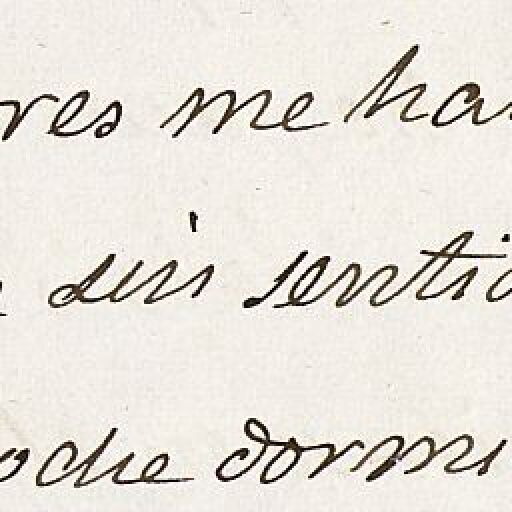 res me han
sin sentid
oche dormi